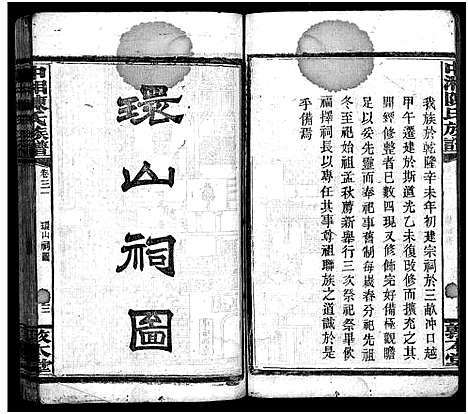 中湘陳氏族譜
我族於乾隆辛未年初建宗祠於三畝冲口越
甲午遷建於斯道光乙未復改修而擴充之其
間經修整者已數四現又修飾完好備極觀瞻
足以妥先靈而奉祀事舊制每歲春分祀先祖
冬至祀始祖孟秋薦新舉行三次祭祀祭畢飲
福擇祠長以專任其事尊祖聯族之道識於是
乎備焉
環山祠圖
中湘陳氏族譜
卷三
環山祠圖